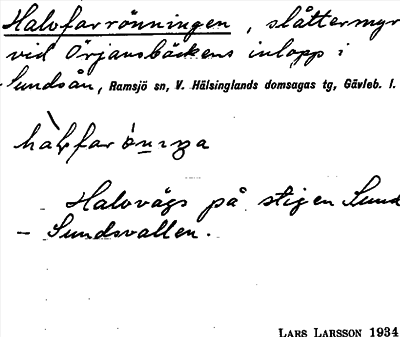 Halvfarrönningen, slåttermyr
vid Örjansbäckens inlopp i
Sundsån, Ramsjö sn, V. Hälsinglands domsagas tg, Gävleb. l.
Halvvägs på stigen Sund
– Sundsvallen.
LARS LARSSON 1934